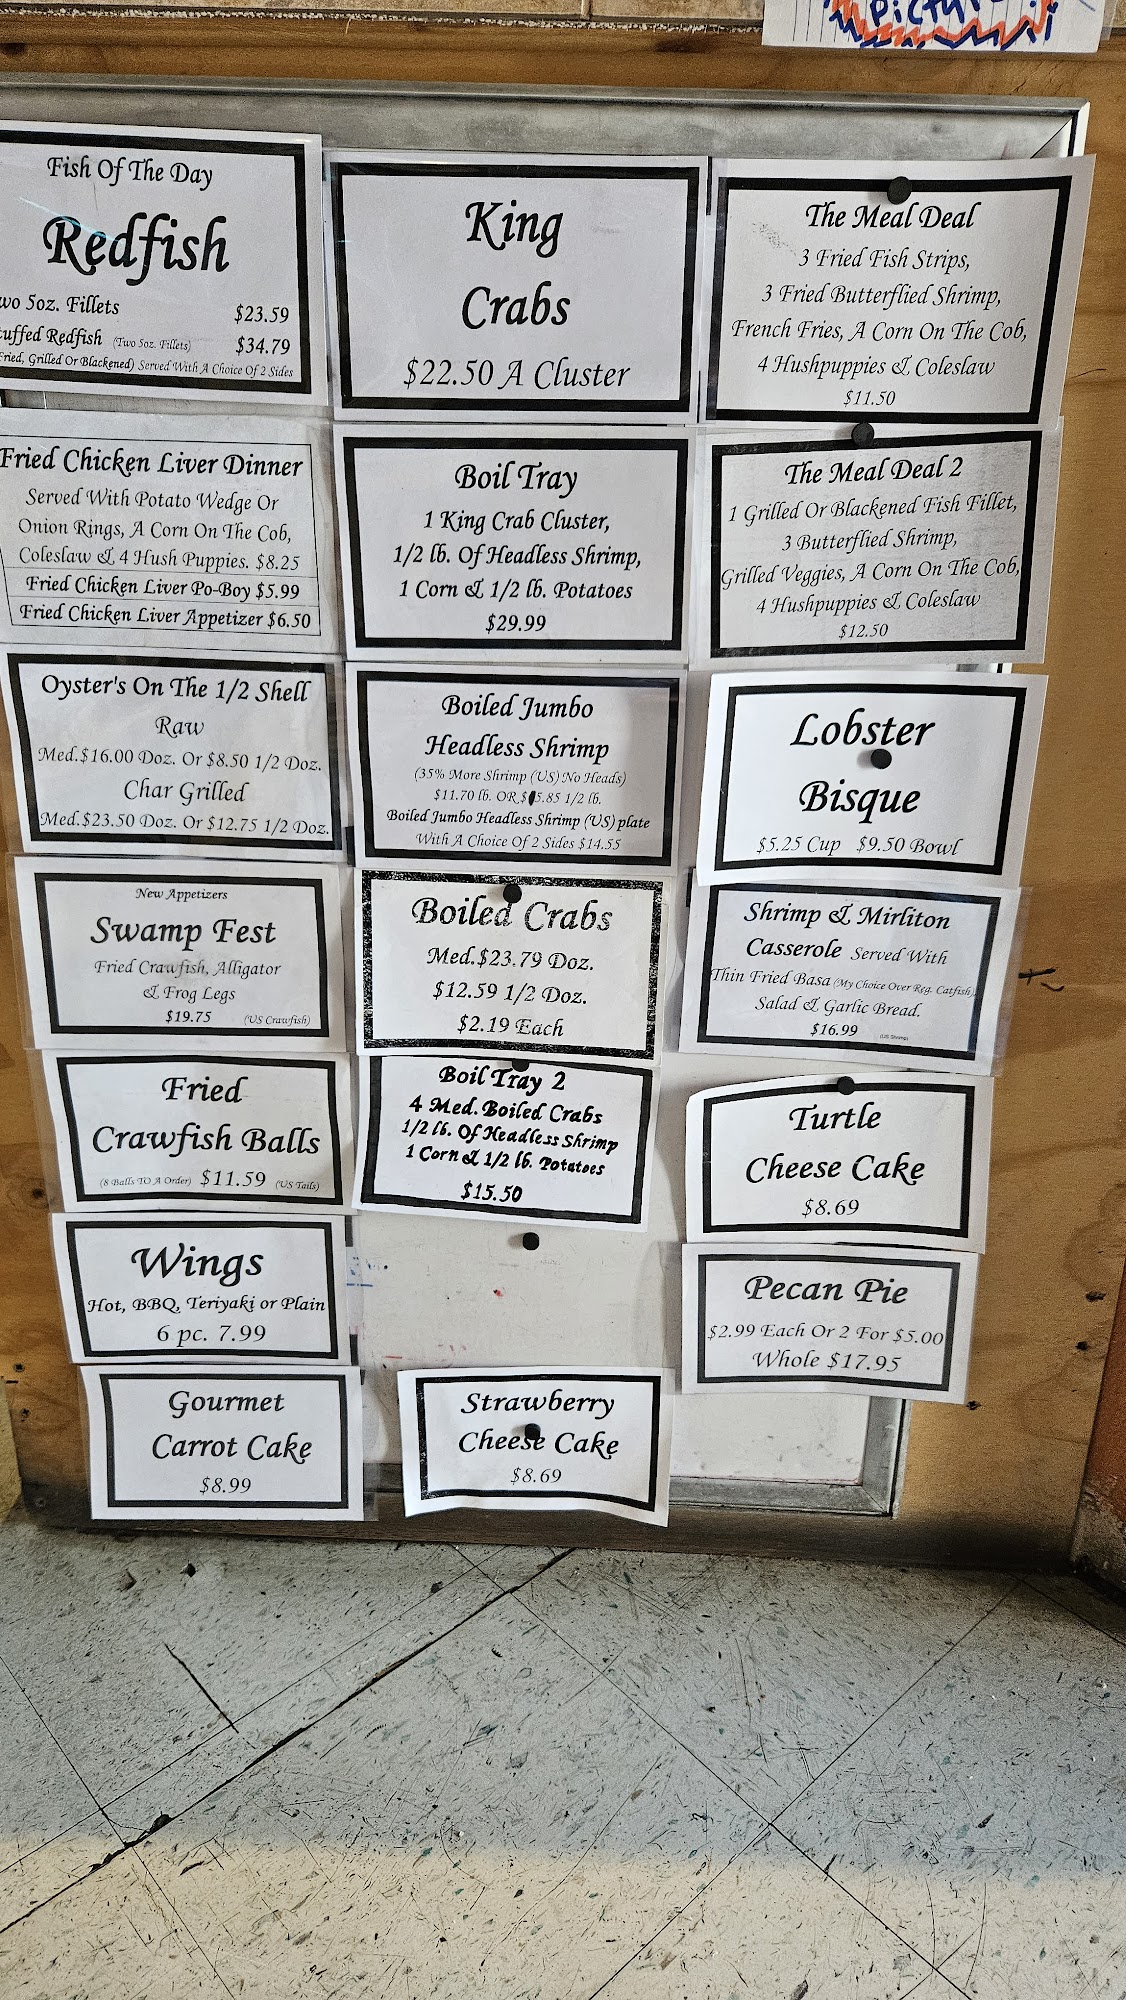 Picture
Fish Of The Day
Redfish
wo 5oz. Fillets $23.59
uffed Redfish (Two 5oz. Fillets) $34.79
Fried, Grilled Or Blackened) Served With A Choice Of 2 Sides
King
Crabs
$22.50 A Cluster
The Meal Deal
3 Fried Fish Strips,
3 Fried Butterflied Shrimp,
French Fries, A Corn On The Cob,
4 Hushpuppies & Coleslaw
$11.50
Fried Chicken Liver Dinner
Served With Potato Wedge Or
Onion Rings, A Corn On The Cob,
Coleslaw & 4 Hush Puppies. $8.25
Fried Chicken Liver Po-Boy $5.99
Fried Chicken Liver Appetizer $6.50
Boil Tray
1 King Crab Cluster,
1/2 lb. Of Headless Shrimp,
1 Corn & 1/2 lb. Potatoes
$29.99
The Meal Deal 2
1 Grilled Or Blackened Fish Fillet,
3 Butterflied Shrimp,
Grilled Veggies, A Corn On The Cob,
4 Hushpuppies & Coleslaw
$12.50
Oyster's On The 1/2 Shell
Raw
Med.$16.00 Doz. Or $8.50 1/2 Doz.
Char Grilled
Med.$23.50 Doz. Or $12.75 1/2 Doz.
Boiled Jumbo
Headless Shrimp
(35% More Shrimp (US) No Heads)
$11.70 lb. OR $5.85 1/2 lb.
Boiled Jumbo Headless Shrimp (US) plate
With A Choice Of 2 Sides $14.55
Lobster
Bisque
$5.25 Cup $9.50 Bowl
New Appetizers
Swamp Fest
Fried Crawfish, Alligator
& Frog Legs
$19.75 (US Crawfish)
Boiled Crabs
Med.$23.79 Doz.
$12.59 1/2 Doz.
$2.19 Each
Shrimp & Mirliton
Casserole Served With
Thin Fried Basa (My Choice Over Reg. Catfish),
Salad & Garlic Bread.
$16.99 (US Shrimp)
Fried
Crawfish Balls
(8 Balls TO A Order) $11.59 (US Tails)
Boil Tray 2
4 Med. Boiled Crabs
1/2 lb. Of Headless Shrimp
1 Corn & 1/2 lb. Potatoes
$15.50
Turtle
Cheese Cake
$8.69
Wings
Hot, BBQ, Teriyaki or Plain
6 pc. 7.99
Pecan Pie
$2.99 Each Or 2 For $5.00
Whole $17.95
Gourmet
Carrot Cake
$8.99
Strawberry
Cheese Cake
$8.69